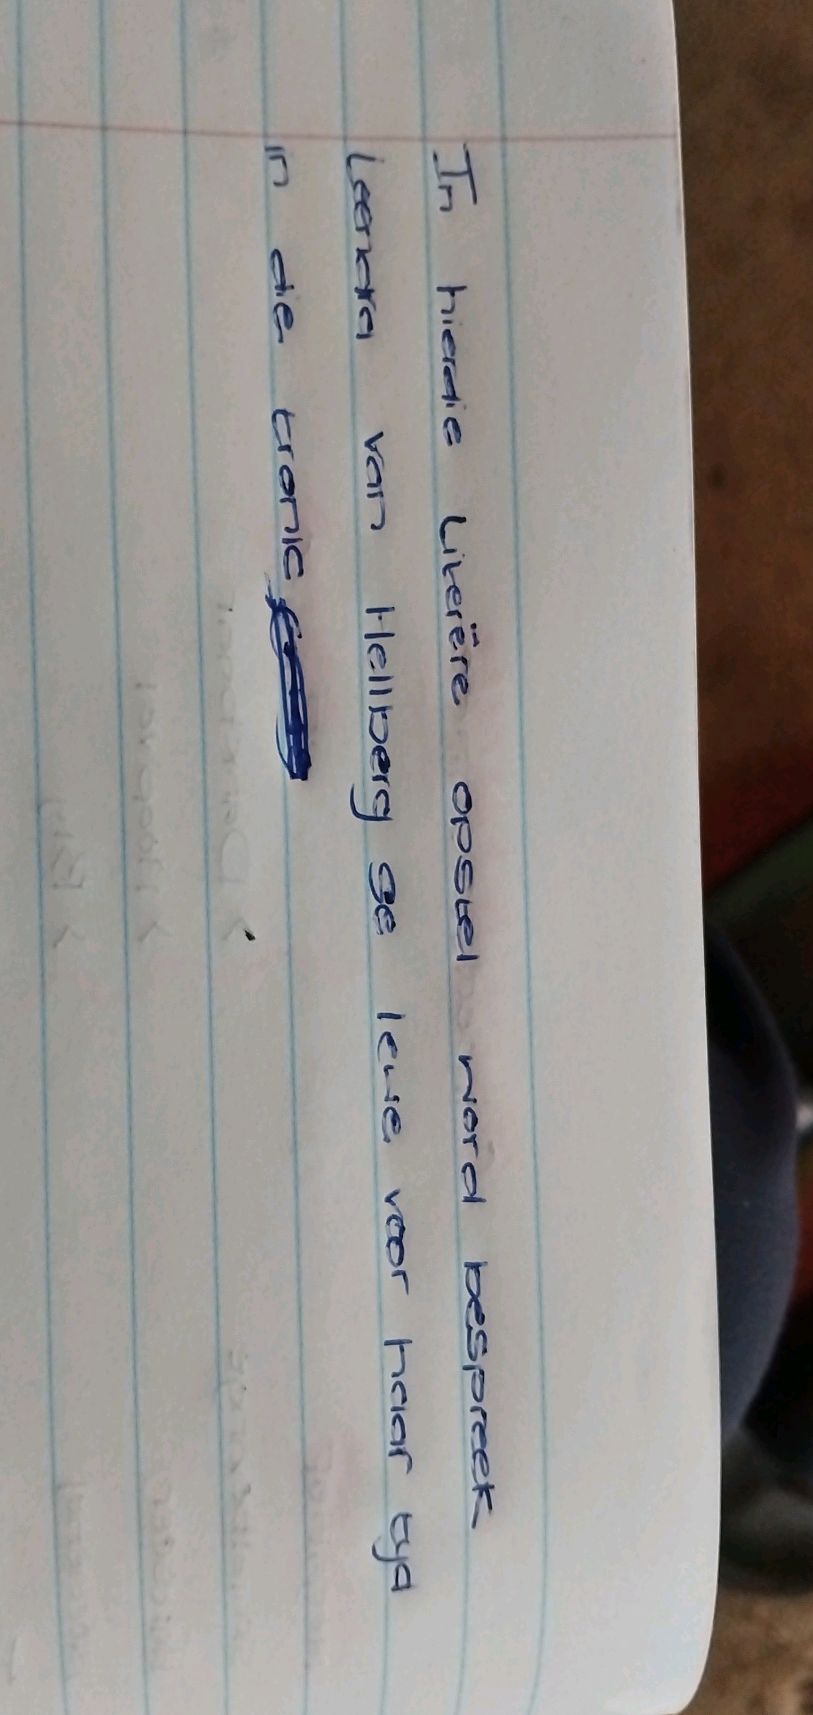 In hierdie Literêre opstel word bespreek
Leendra van Hellberg se lewe voor haar tyd
in die tronk